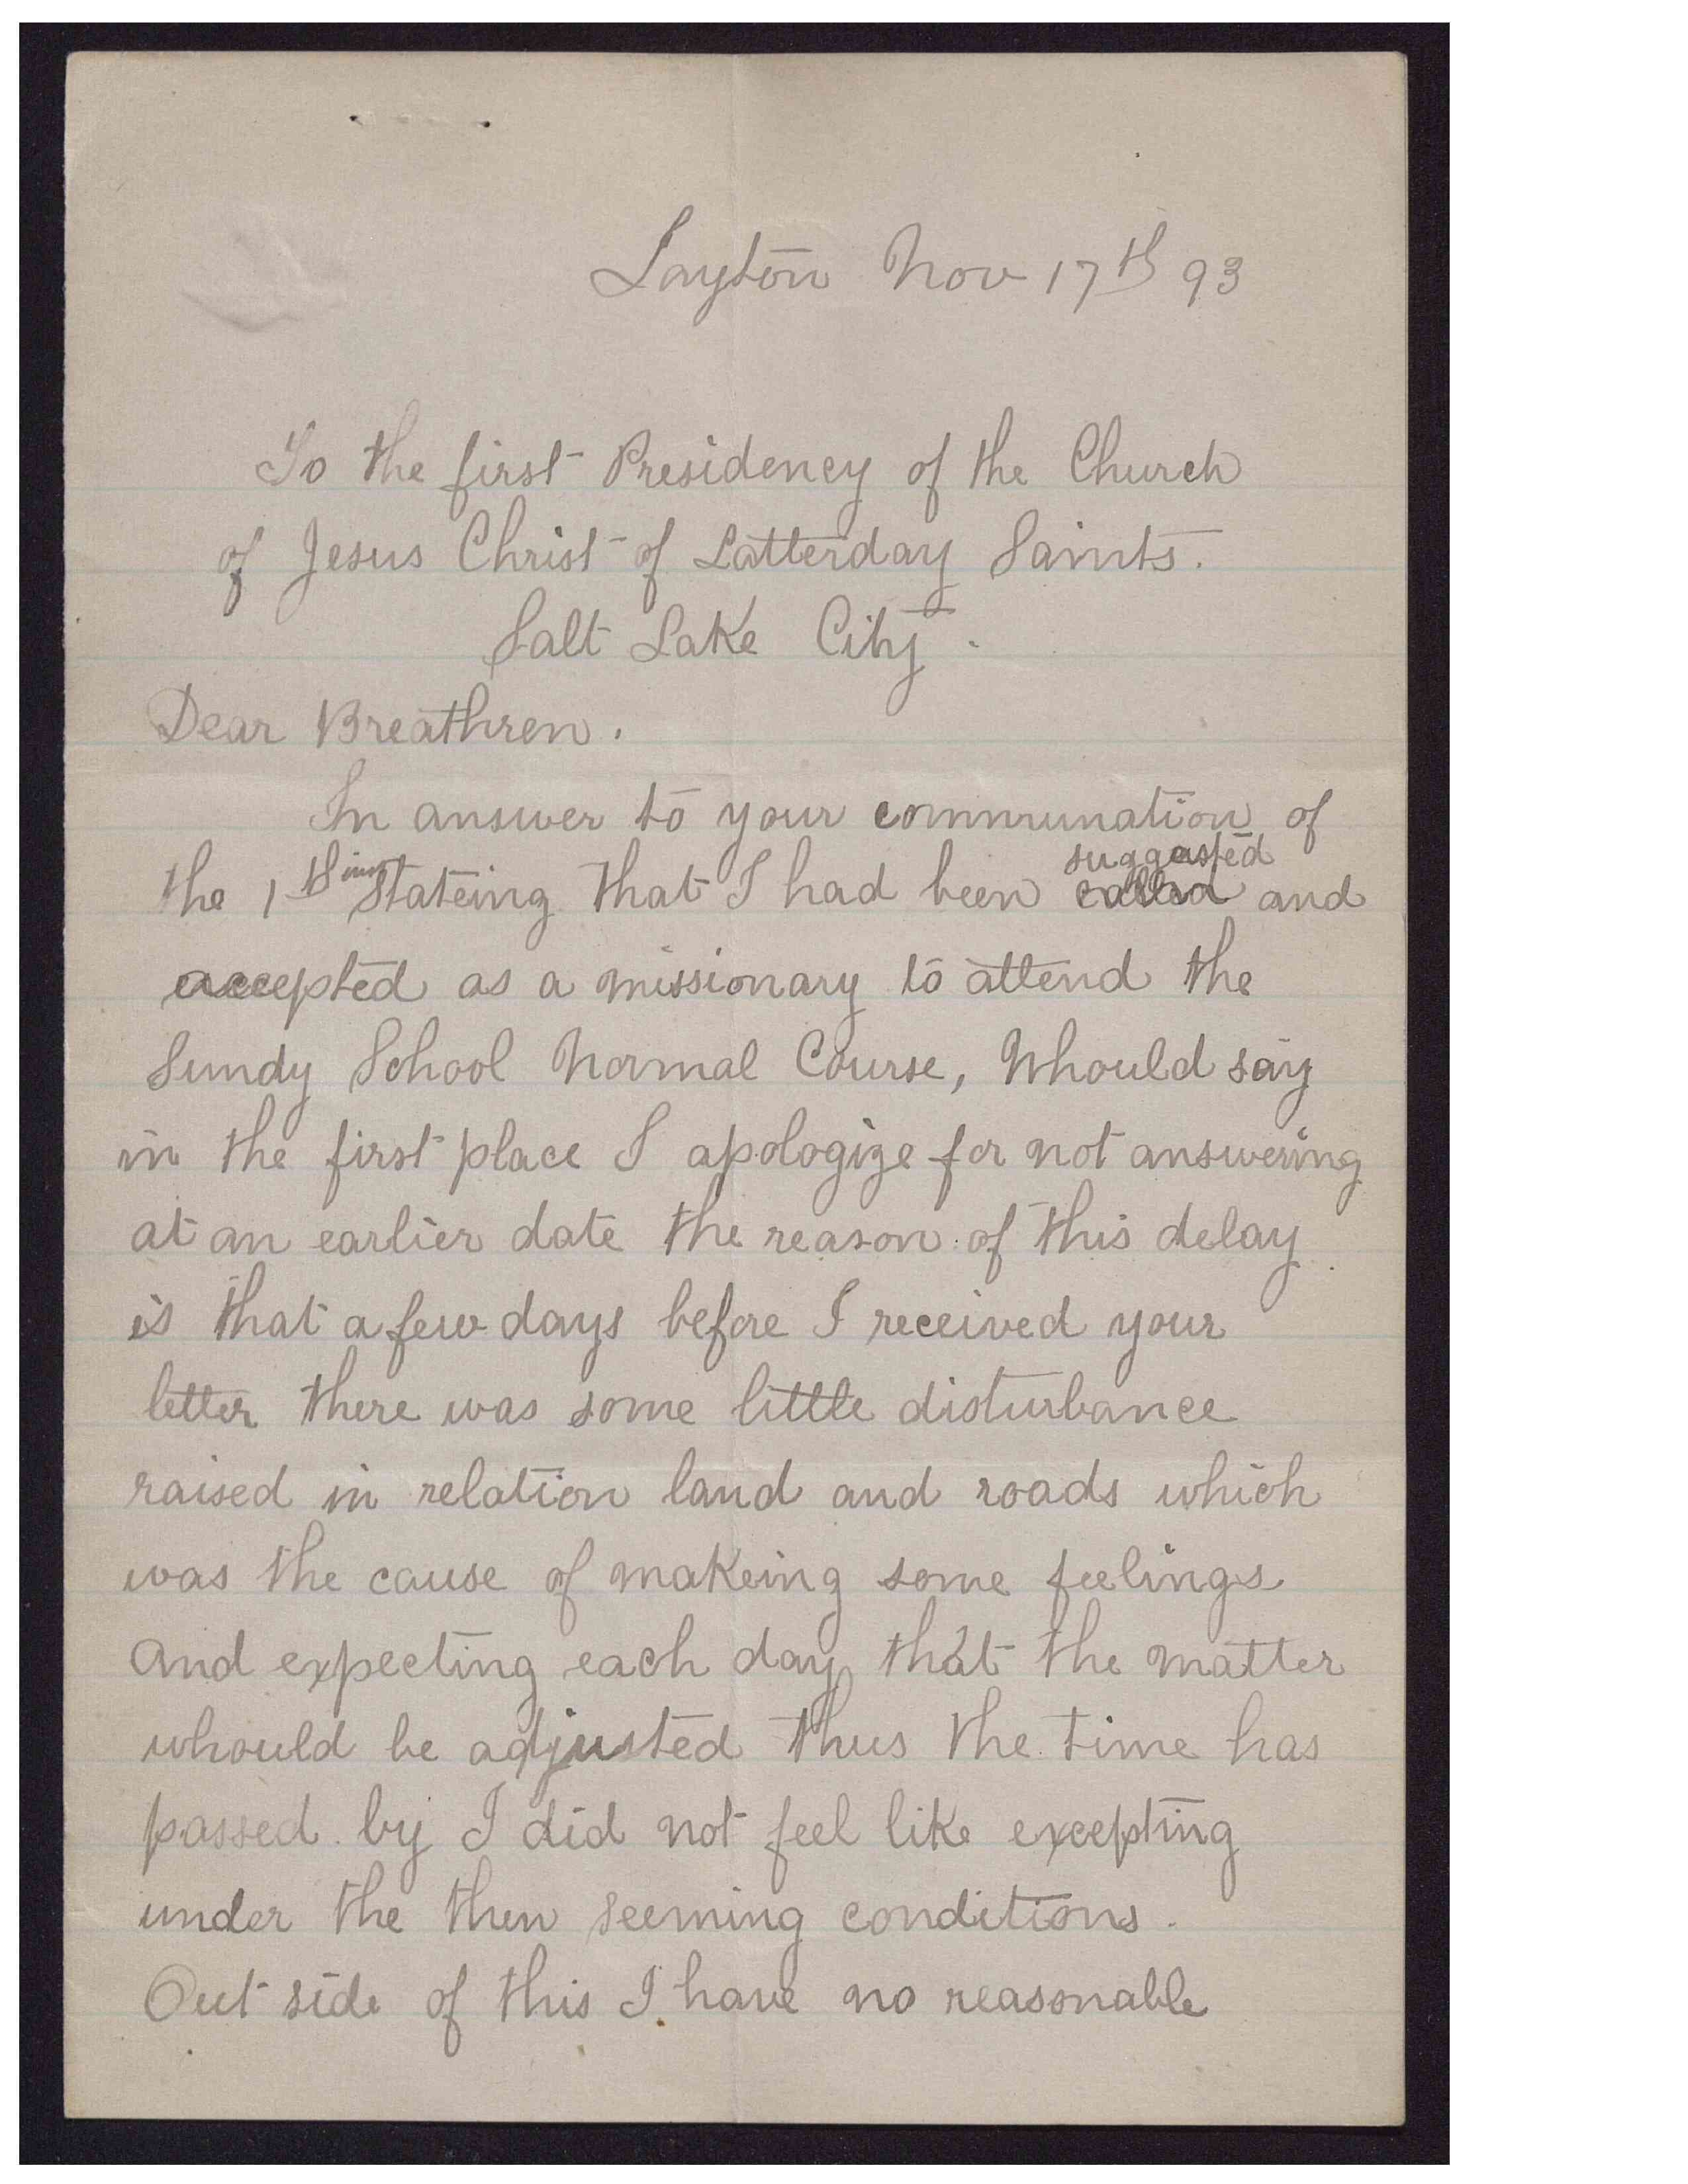 Layton Nov 17th 93
To the first Presidency of the Church
of Jesus Christ of Latterday Saints.
Salt Lake City.
Dear Breathren.
In answer to your communation of
suggested
the 1th inst Stateing that I had been called and
accepted as a missionary to attend the
Sundy School Normal Course, Whould say
in the first place I apologize for not answering
at an earlier date the reason of this delay
is that a few days before I received your
letter there was some little disturbance
raised in relation land and roads which
was the cause of makeing some feelings
and expecting each day that the matter
whould be adjusted thus the time has
passed by I did not feel like excepting
under the then seeming conditions.
Out side of this I have no reasonable